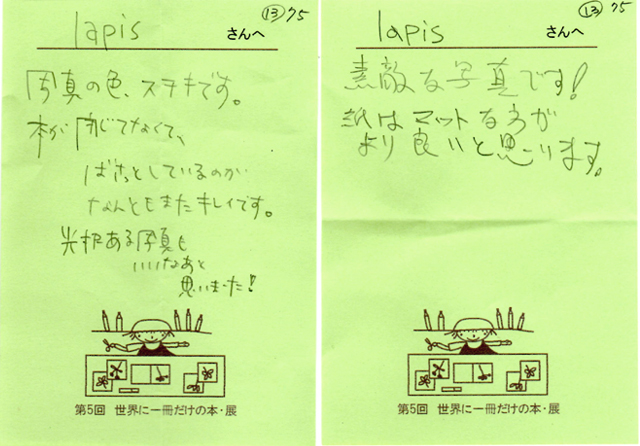 ⑬ 75
lapis さんへ
写真の色、ステキです。
本が閉じてなくて、
ばさっとしているのが
なんともまたキレイです。
光沢ある写真も
いいなあと
思いました!
第5回 世界に一冊だけの本・展
⑬ 75
lapis さんへ
素敵な写真です!
紙はマットな方が
より良いと思います。
第5回 世界に一冊だけの本・展